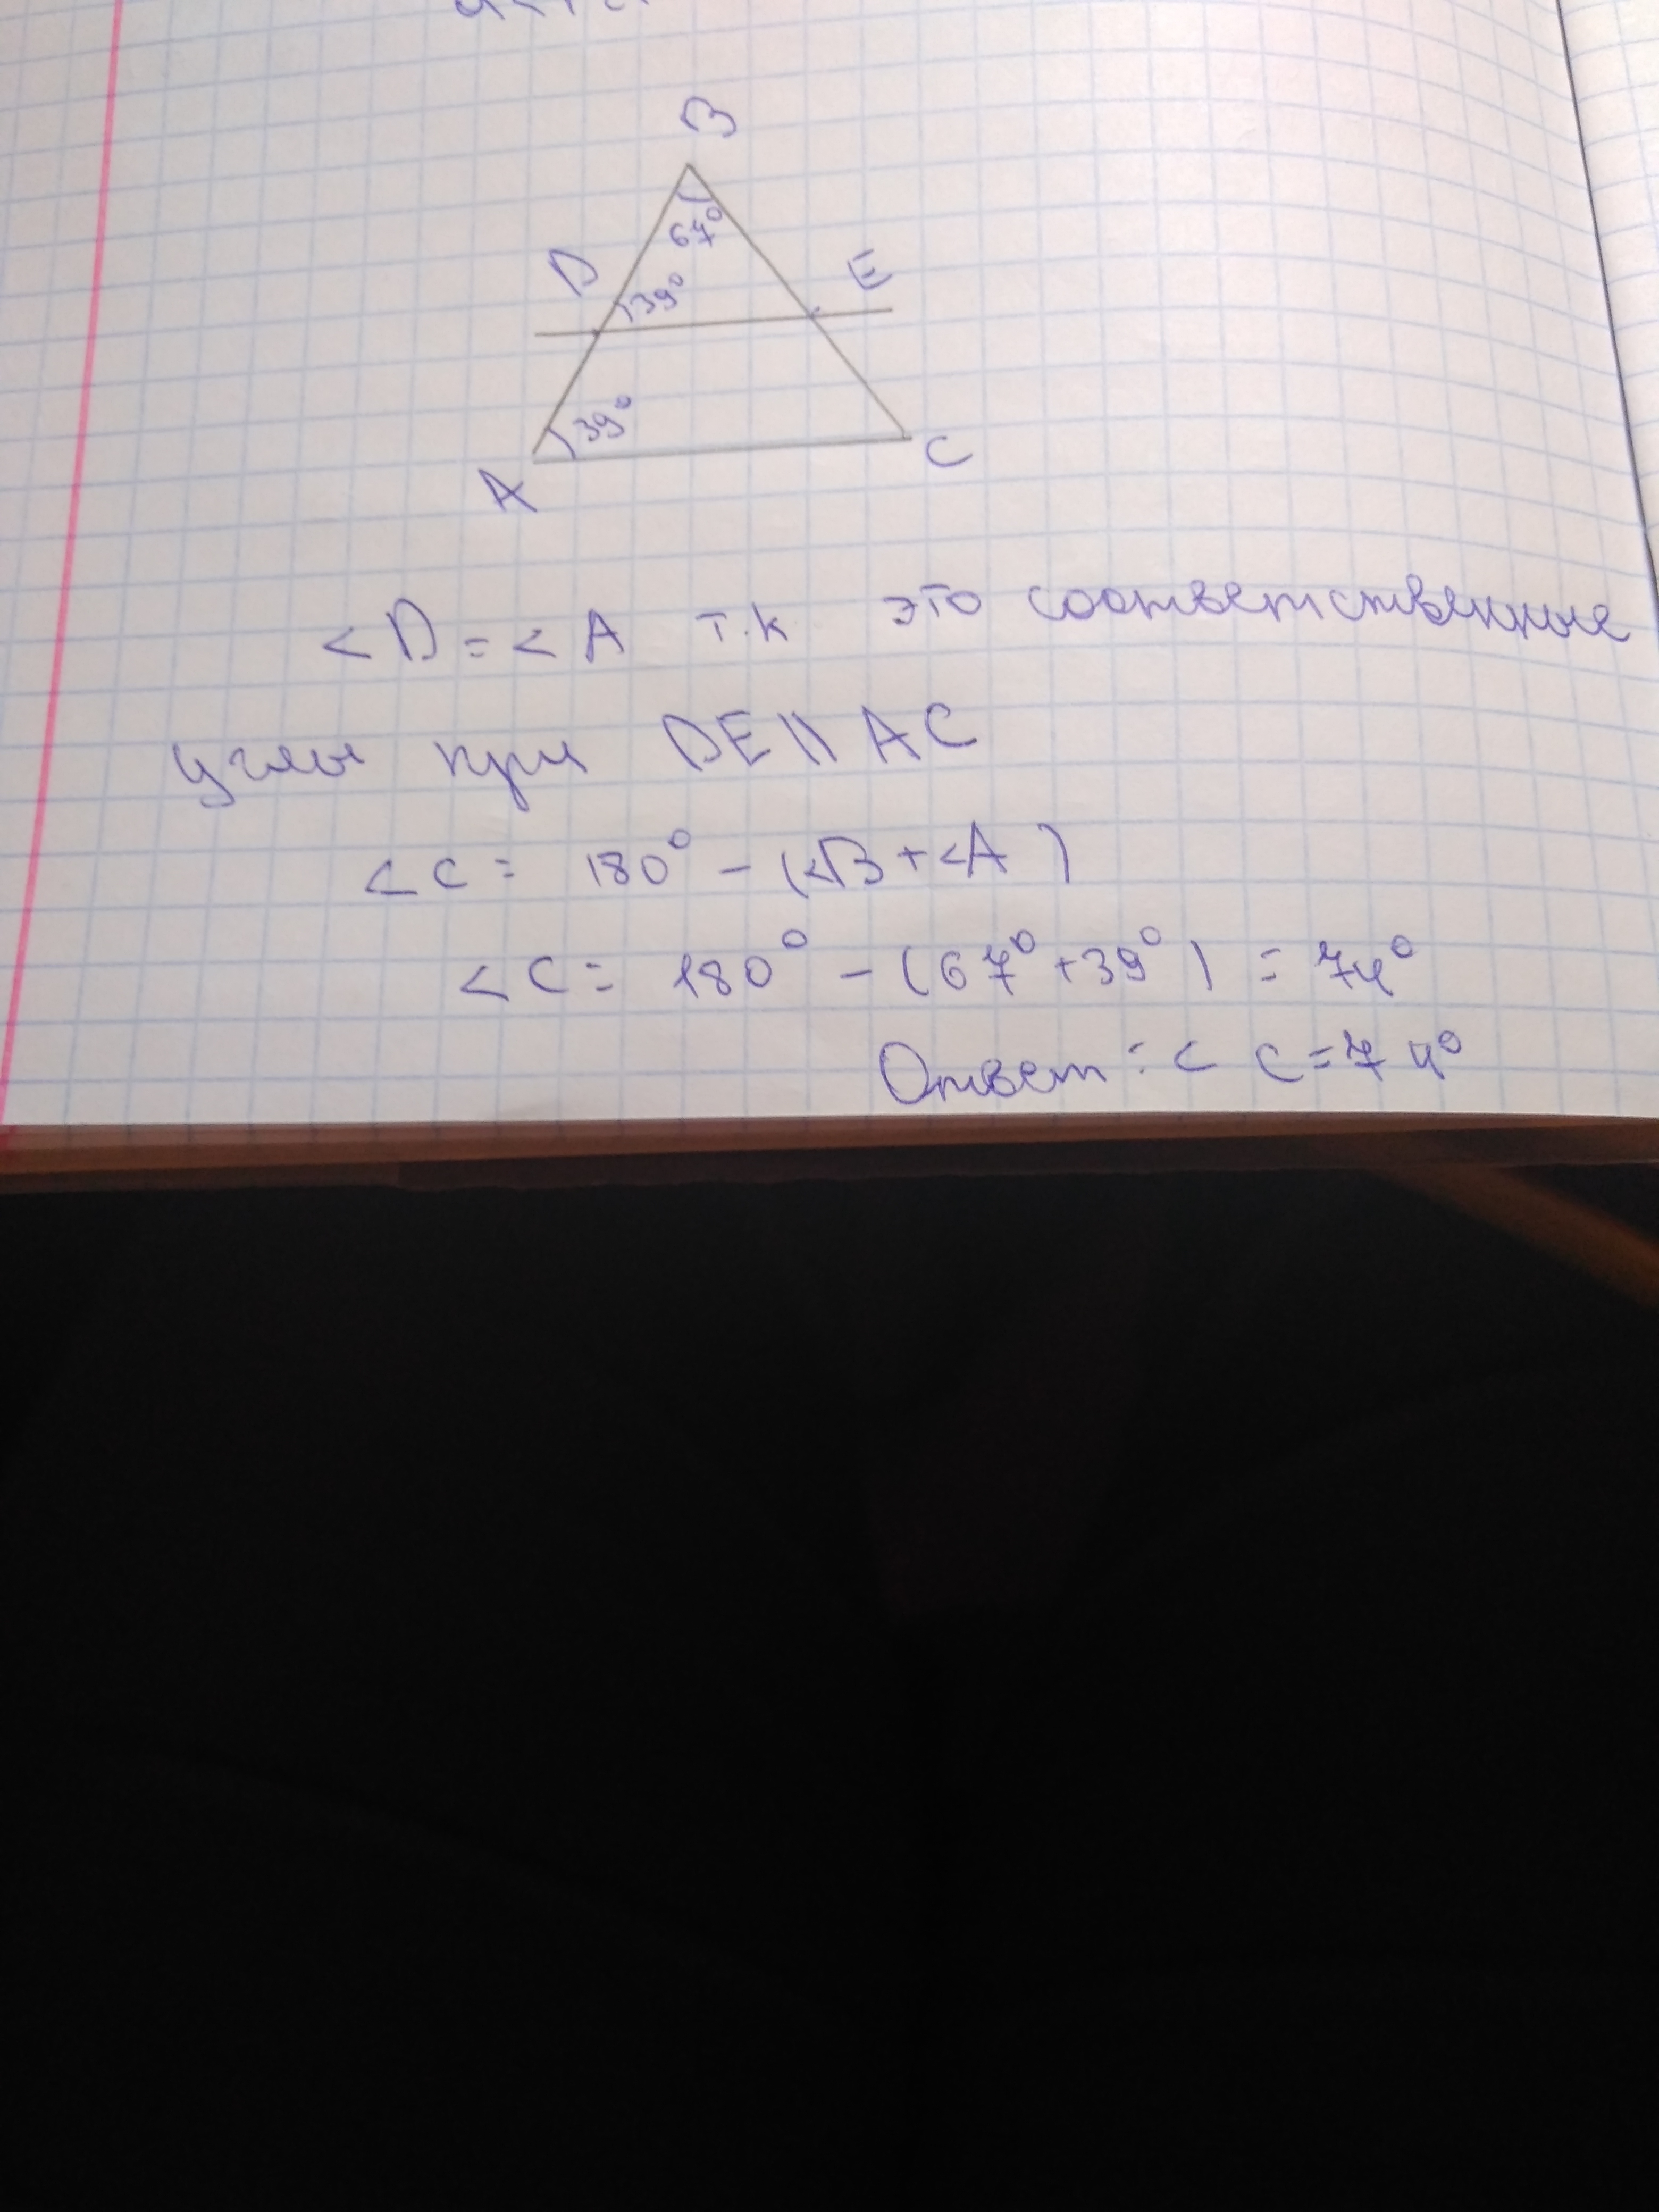 B
67°
D
E
39°
39°
A
C
< D = < A т.к это соответственные
углы при DE || AC
< C = 180° - (<B + <A)
< C = 180° - (67° + 39°) = 74°
Ответ: < C = 74°